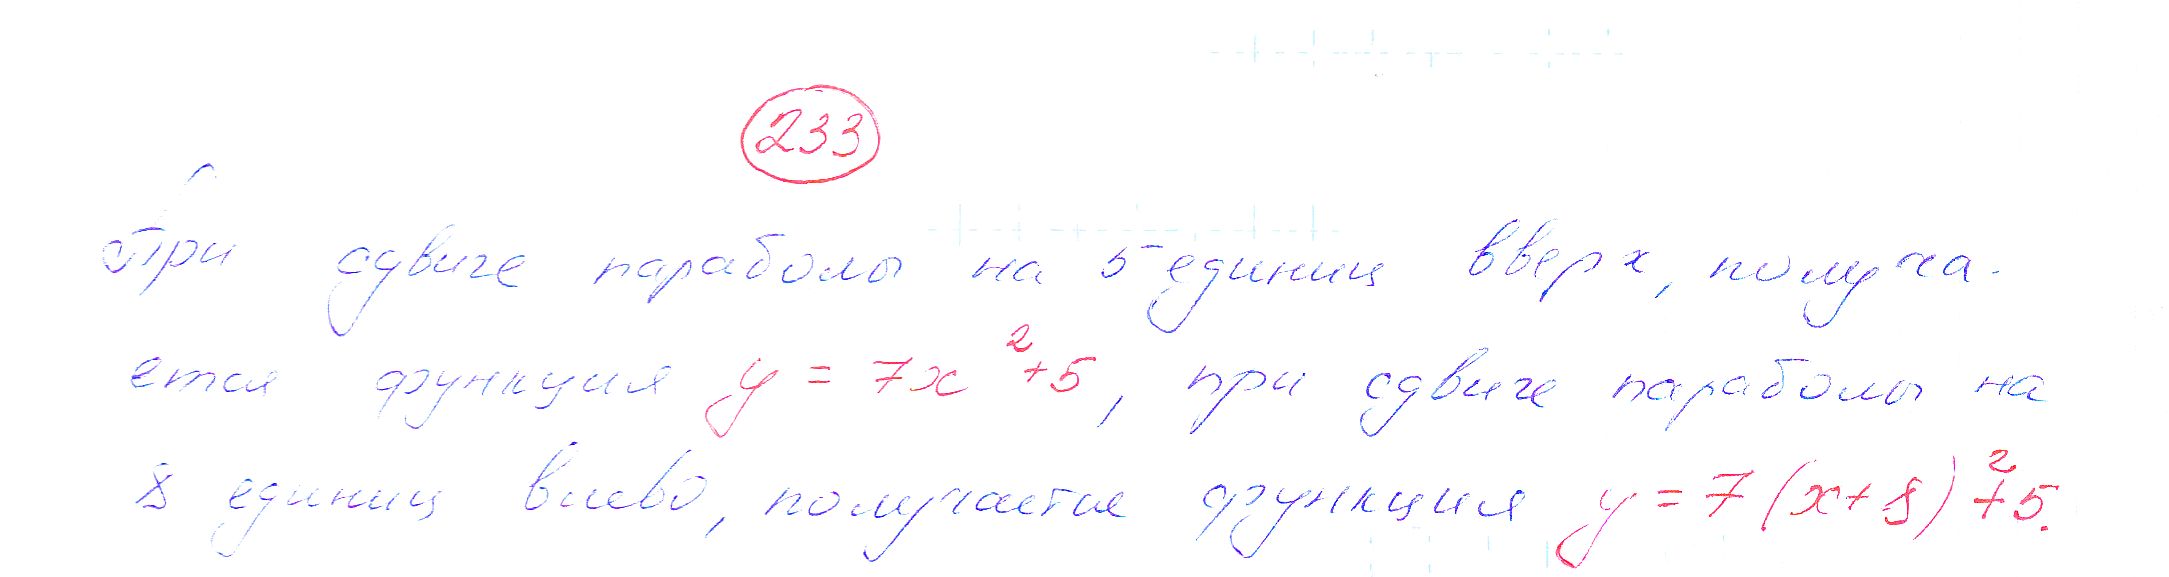 233
При сдвиге параболы на 5 единиц вверх, получа-
ется функция y = 7x²+5, при сдвиге параболы на
8 единиц влево, получается функция y = 7(x+8)²+5.